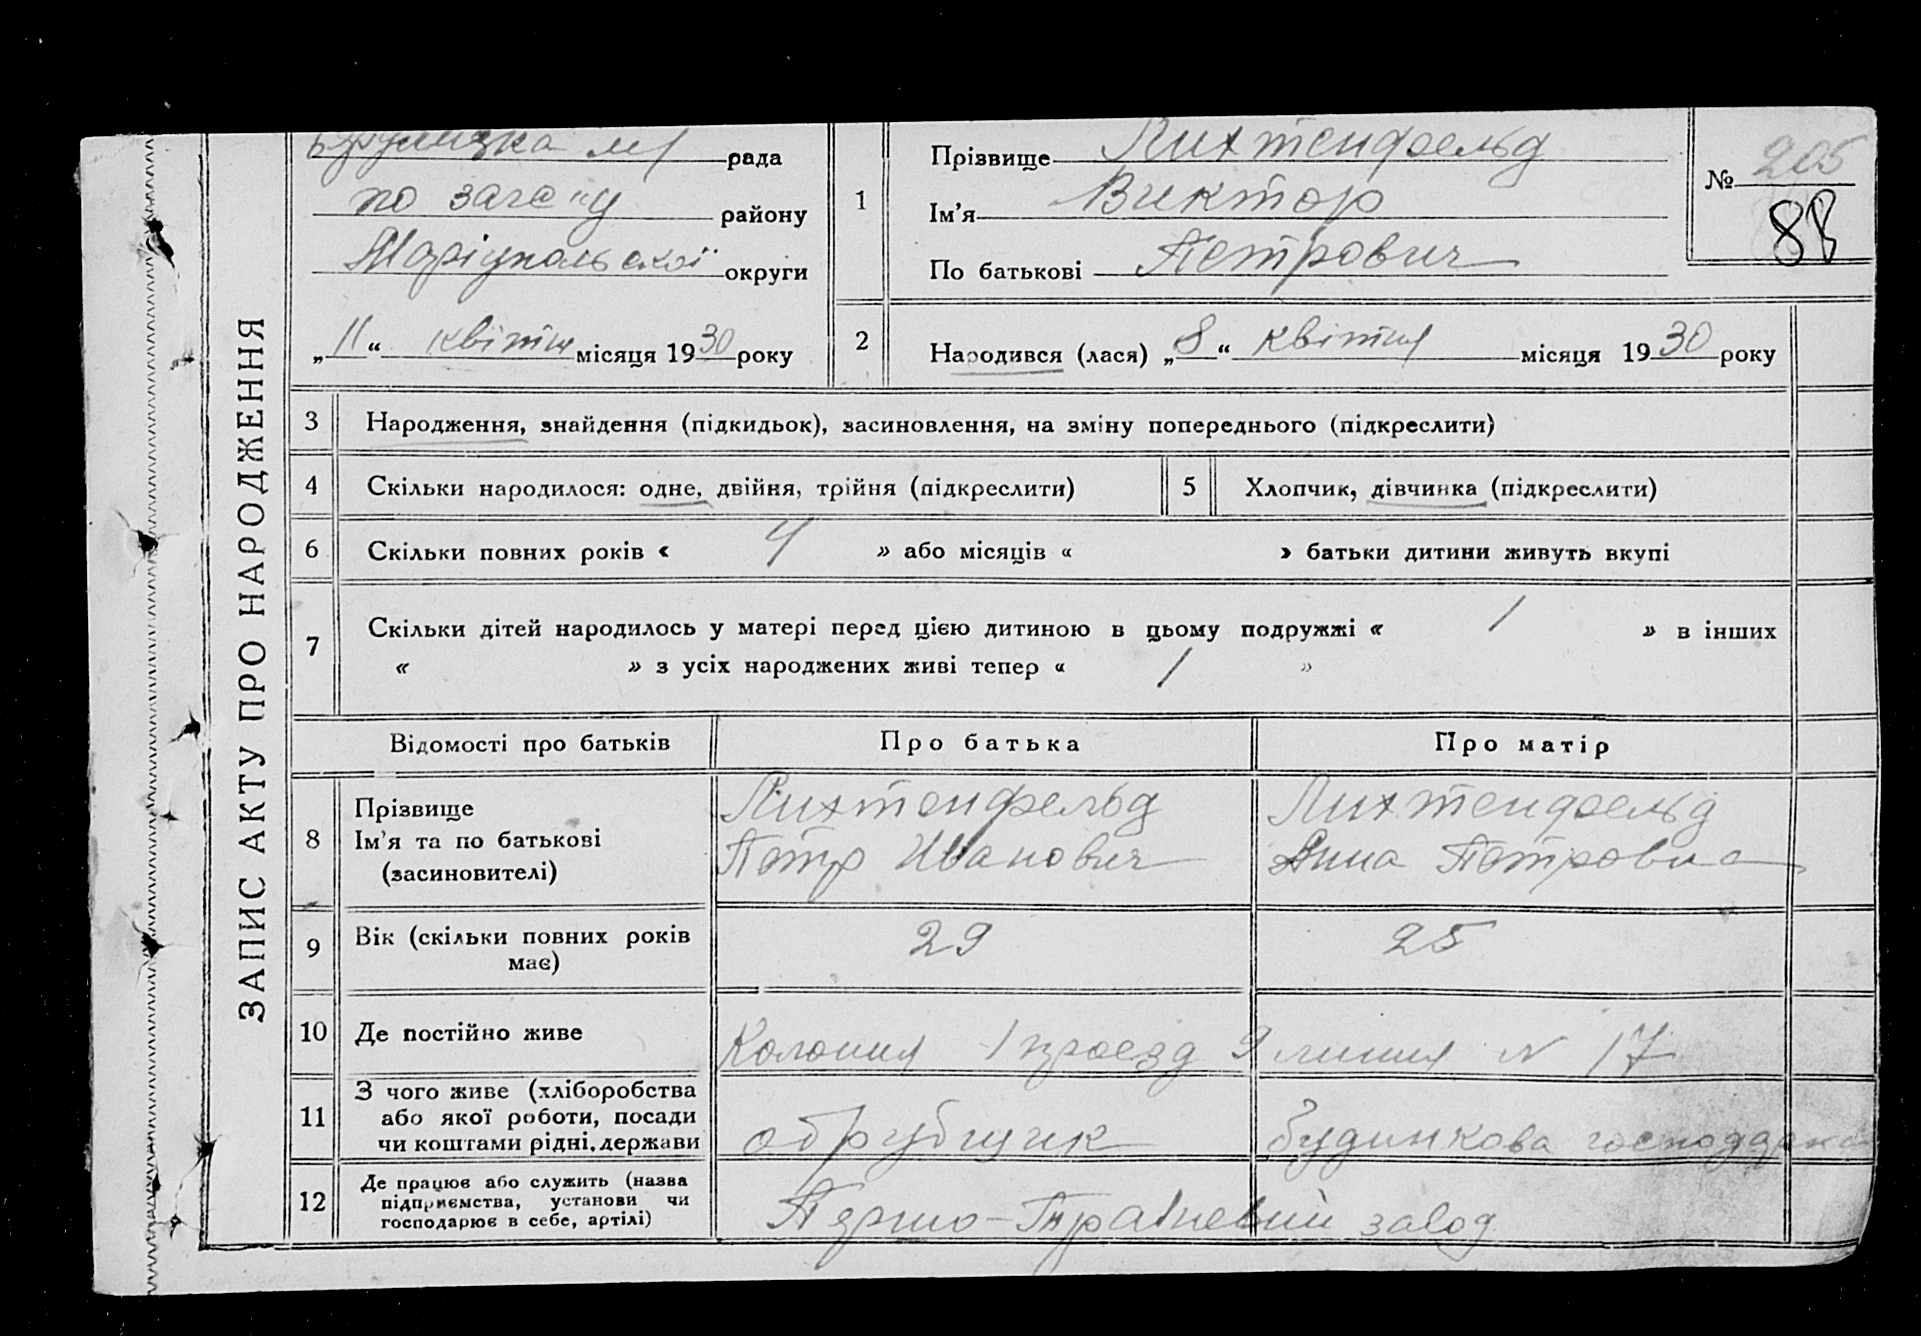 ЗАПИС АКТУ ПРО НАРОДЖЕННЯ
рада
по загсу району
Маріупольської округи
„11“ квітня місяця 1930 року
1
Прізвище Лихтенфельд
Ім’я Виктор
По батькові Петрович
№ 205
88
2
Народився (лася) „8“ квітня місяця 1930 року
3 Народження, знайдення (підкидьок), засиновлення, на зміну попереднього (підкреслити)
4 Скільки народилося: одне, двійня, трійня (підкреслити)
5 Хлопчик, дівчинка (підкреслити)
6 Скільки повних років « 4 » або місяців « » батьки дитини живуть вкупі
7 Скільки дітей народилось у матері перед цією дитиною в цьому подружжі « 1 » в інших
« » з усіх народжених живі тепер « 1 »
Відомості про батьків Про батька Про матір
8 Прізвище Лихтенфельд Лихтенфельд
Ім’я та по батькові Петр Иванович Анна Петровна
(засиновителі)
9 Вік (скільки повних років має) 29 25
10 Де постійно живе Колония 1 проезд 9 линия N 17
11 З чого живе (хліборобства
або якої роботи, посади
чи коштами рідні, держави обрубщик будинкова господарка
12 Де працює або служить (назва
підприємства, установи чи
господарює в себе, артілі) завод